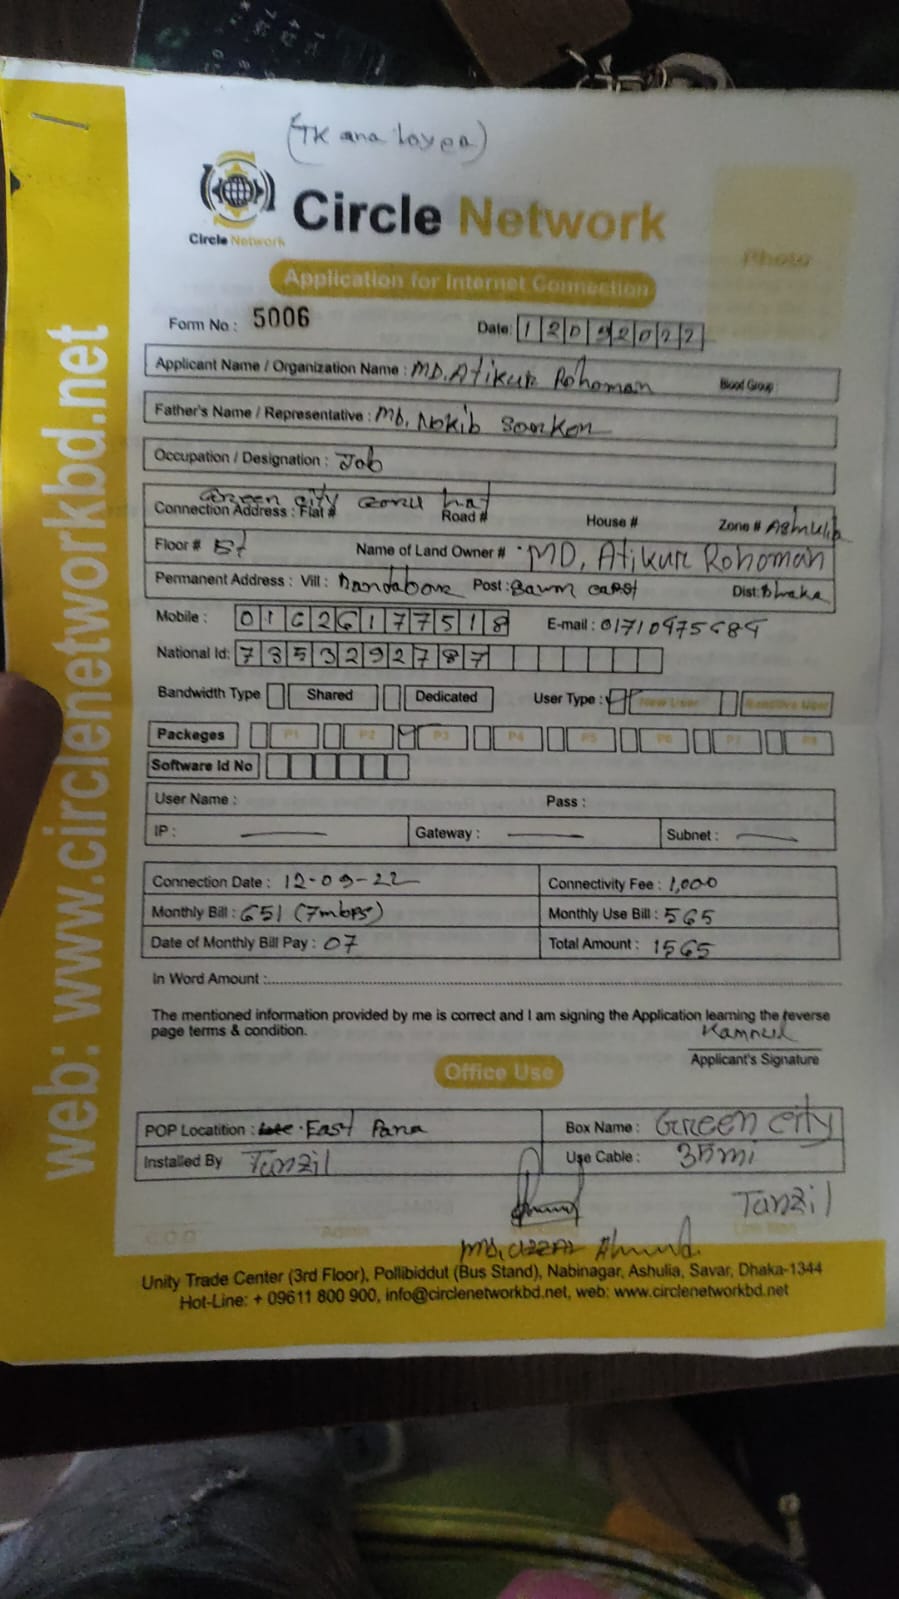 (TK ana hoyea)
Circle Network
Circle Network
Photo
Application for Internet Connection
Form No : 5006 Date: 12092022
Applicant Name / Organization Name : MD. Atikur Rohoman Blood Group
Father's Name / Representative : MD. Nokib Sorker
Occupation / Designation : Job
Connection Address : Flat # Green city Goru hat Road # House # Zone # Ashulia
Floor # 1st Name of Land Owner # MD, Atikur Rohoman
Permanent Address : Vill : Post : Dist: Dhaka
Mobile : 01626177518 E-mail : 01710975684
National Id: 7353292787
Bandwidth Type Shared Dedicated User Type : New User
Packeges P1 P2 P3 P4 P5 P6 P7 P8
Software Id No
User Name : Pass :
IP : Gateway : Subnet :
Connection Date : 12-09-22 Connectivity Fee : 1,000
Monthly Bill : 651 (7mbps) Monthly Use Bill : 565
Date of Monthly Bill Pay : 07 Total Amount : 1565
In Word Amount :
The mentioned information provided by me is correct and I am signing the Application learning the reverse
page terms & condition.
Applicant's Signature
Office Use
POP Locatition : East Para Box Name : Green city
Installed By Tanzil Use Cable : 35mi
Tanzil
C.O.O Admin
Unity Trade Center (3rd Floor), Pollibiddut (Bus Stand), Nabinagar, Ashulia, Savar, Dhaka-1344
Hot-Line: + 09611 800 900, info@circlenetworkbd.net, web: www.circlenetworkbd.net
web: www.circlenetworkbd.net